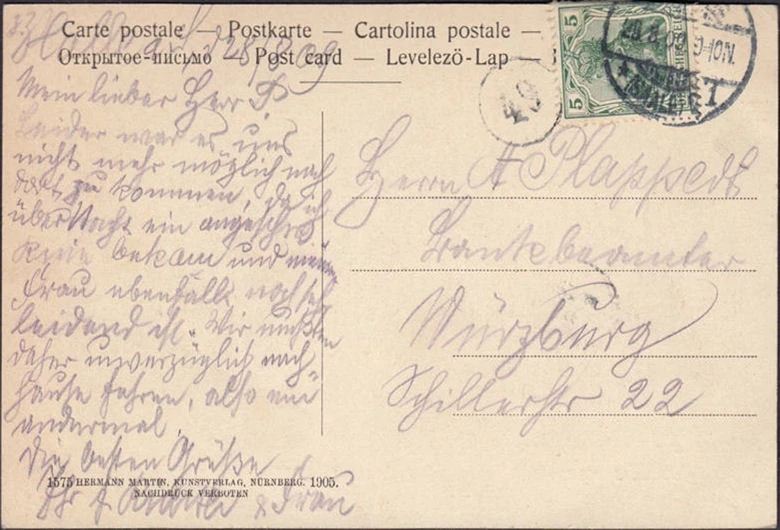 Carte postale — Postkarte — Cartolina postale —
Открытое-письмо — Post card — Levelezö-Lap —
28/8 09
Mein lieber Herr P
Leider war es uns
nicht mehr möglich nach
dort zu kommen, da ich
über Nacht ein
bekam und meine
Frau ebenfalls noch sehr
leidend ist. Wir mußten
daher unverzüglich nach
Hause fahren, also ein
andermal
Die besten Grüße
Ihr & Frau
1575 HERMANN MARTIN, KUNSTVERLAG, NÜRNBERG. 1905.
NACHDRUCK VERBOTEN
5
5
49
9-10N.
Herrn A
Bankbeamter
Würzburg
Schillerstr 22